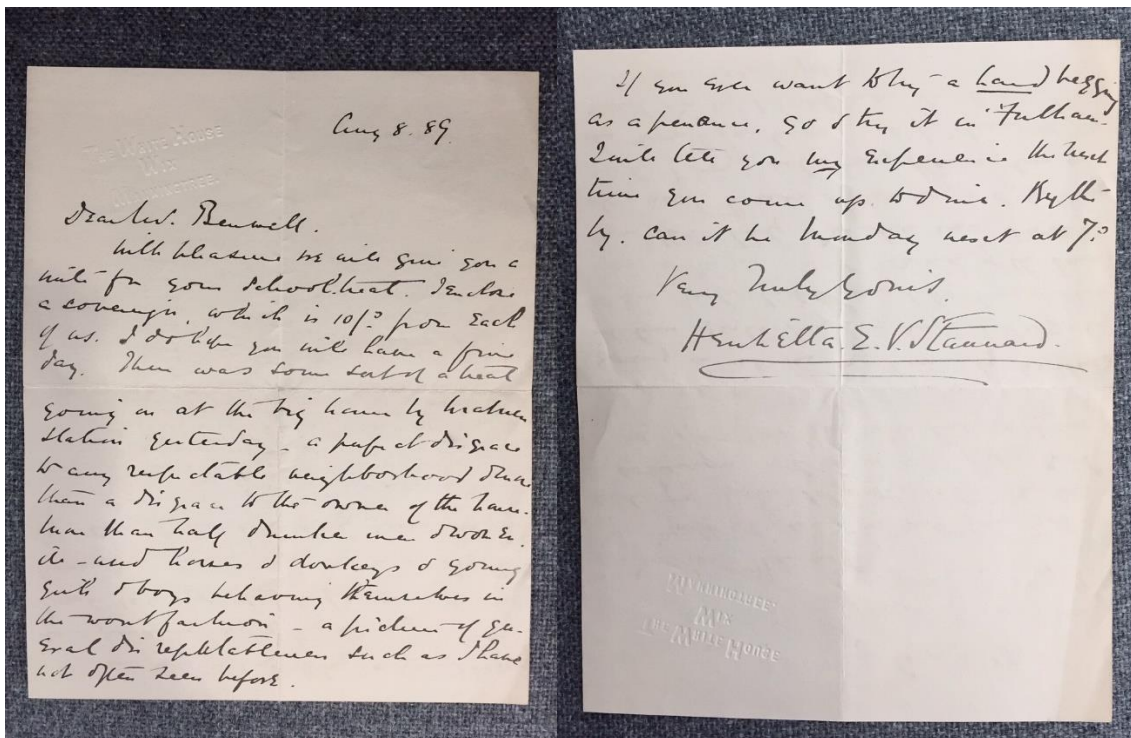 The White House
Wix
Manningtree.
Aug 8. 89.
Dear Mr. Benwell.
With pleasure we will give you a
mite for your School treat. I enclose
a sovereign, which is 10/- from Each
of us. I do hope you will have a fine
day. There was some sort of a treat
going on at the big house by
station yesterday - a perfect disgrace
to any respectable neighborhood & more
than a disgrace to the owner of the house.
More than half drunken men & women
- and horses & donkeys & young
girls & boys behaving themselves in
the worst fashion - a picture of gen-
eral disreputableness such as I have
not often seen before.
If you Ever want to try a hand begging
as a penance, go & try it in Fulham.
I will tell you my Experience the next
time you come up to dine. By the
by. can it be Monday next at 7.?
Very truly yours.
Henrietta. E. V. Stannard.
The White House
Wix
Manningtree.